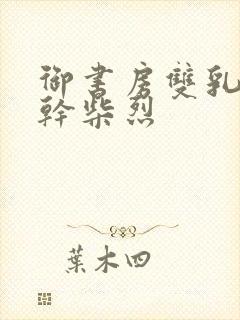 御書房雙乳
幹柴烈
葉木四